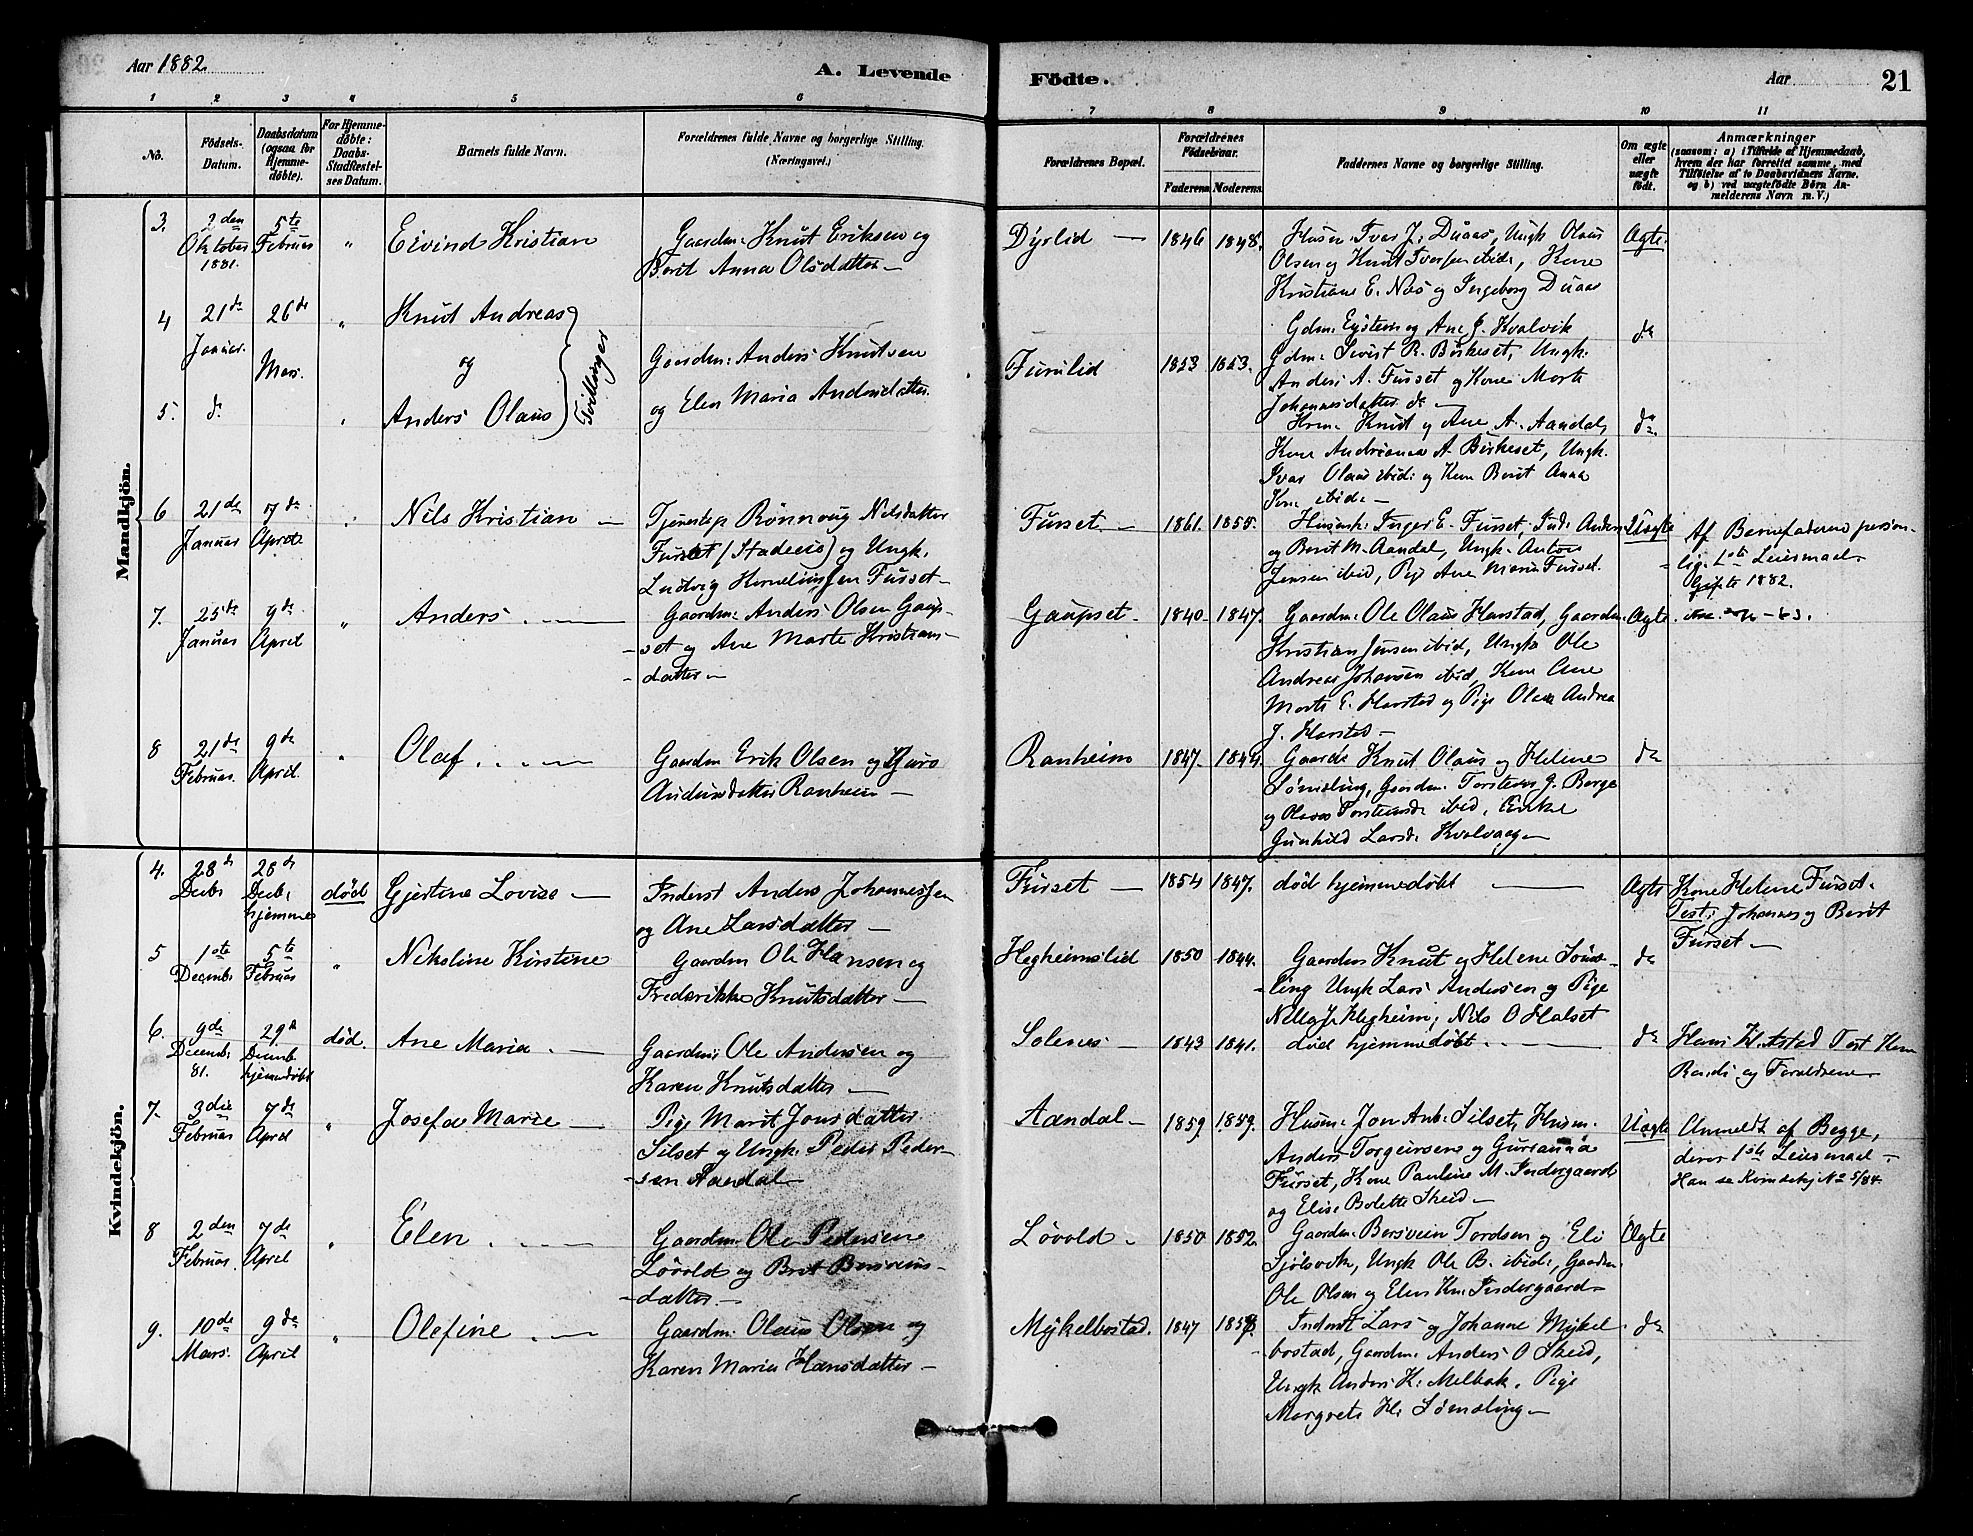 Aar 1882.
A. Levende Födte.
Aar 21
1 2 3 4 5 6 7 8 9 10 11
No.
Födsels-Datum.
Daabsdatum (ogsaa for Hjemmedöbte).
For Hjemmedöbte: Daabs-Stadfæstelses Datum.
Barnets fulde Navn.
Forældrenes fulde Navne og borgerlige Stilling.
(Næringsvei.)
Forældrenes Bopæl.
Forældrenes Födselsaar.
Faderens. Moderens.
Faddernes Navne og borgerlige Stilling.
Om ægte eller uægte födt.
Anmærkninger
(saasom: a) i Tilfælde af Hjemmedaab, hvem der har forrettet samme, med Tilföielse af to Daabsvidners Navne. og b) ved uægtefödte Börn Anmelderens Navn m. V.)
Mandkjön.
3. 2den Oktober 1881. 5te Februar " Eivind Kristian
Gaardm: Knut Eriksen og
Berit Anna Olsdatter —
Dyrlid — 1846 1848.
Husm: Ivar J. Duaas, Ungk Olaus
Olsen og Knut Iversen ibid:, Kone
Kristiane E. Næs og Ingeborg Duaas
Ægte.
4 21de Januar. 26de Mars. " Knut Andreas
og
5. do. " Anders Olaus
Tvillinger
Gaardm: Anders Knutsen
og Elen Maria Andersdatter.
Furulid 1853 1853.
Gdm: Eystein og Ane J. Kvalvik
Gdm: Sivert R. Birkeset, Ungk.
Anders A. Furset og Kone Marte
Johannesdatter do —
do
Knut og Ane A. Aandal,
Kone Andrianna A. Birkeset, Ungk.
Ivar Olaus ibid: og Kone Berit Anna
ibid: —
do.
6 21de Januar 7de April " Nils Kristian —
Rönnaug Nilsdatter
Furset og Ungk.
Ludvig Kornelius­sen Furset —
Furset — 1861. 1855.
Inger E. Furset, Ind: Anders
og Berit M. Aandal, Ungk. Anton
Jensen ibid, Pige Ane Maria Furset.
Uægte
Af Barnefaderen person-
lig. 1ste Leiermaal
1882.
7. 25de Januar 9de April " Anders. —
Gaardm: Anders Olsen Gaup-
set og Ane Marte Kristians-
datter —
Gaupset — 1840 1847.
Gaardm: Ole Olaus Harstad, Gaardm:
Kristian Jensen ibid, Ungk Ole
Andreas Johansen ibid, Kone Ane
Marte E. Harstad og Pige Olava Andrea
J. Harstad —
Ægte
8 21de Februar. 9de April. " Olaf. —
Gaardm Erik Olsen og Guro
Andersdatter Ranheim —
Ranheim 1847. 1844.
Knut Olaus og Helene
Sömsling, Gaardm. Torstein J. Berge
og Olava ibid, Enke
Gunhild Larsd: Kvalvaag —
do
Kvindekjön.
4. 28de Decbr 28de Decbr. hjemme död Gjertine Lovise —
Inderst Anders Johannessen
og Ane Larsdatter —
Furset — 1854 1847.
död hjemmedöbt —
Ægte
Kone Helene Furset.
Test: Johannes og Berit
Furset —
5 1ste Decembr 5te Februar " Nikoline Kirstine
Gaardm Ole Hansen og
Frederikke Knutsdatter —
Hegheimslid 1850 1844.
Gaardm Knut og Helene Söms-
ling Ungk Lars Andersen og Pige
Hegheim; Nils O Halset
do
6. 9de Decembr: 81. 29de Decemb hjemmedöbt död. Ane Maria. —
Gaardm: Ole Andersen og
Karen Knutsdatter —
Solenes — 1843 1841.
död hjemmedöbt. —
do
Hans Test Kone
Randi og Forældrene
7. 3die Februar 7de April " Josefa Marie —
Pige Marit Jonsdatter
Silset og Ungk. Peder Peder-
sen Aandal —
Aandal — 1859. 1859.
Husm: Jon And: Silset, Husm.
Anders Torgeirsen og Gurianna
Furset, Kone Pauline M. Indergaard
og Elise Bolette Skeid —
Uægte
Anmeldt af Begge,
deres 1ste Leiermaal —
Han se Kvindekj No 5/84.
8 2den Februar. 7de April " Elen. —
Gaardm: Ole Pedersen
Lövold og Brit Bersveins-
datter. —
Lövold — 1850 1852.
Gaardm: Bersvein Tordsen og Eli
Sjölsvik, Ungk Ole B. ibid:, Gaardm:
Ole Olsen og Elen Kn. Indergaard —
Ægte
9. 10de Mars. 9de April " Olefine. —
Gaardm: Olaus Olsen og
Karen Maria Hansdatter —
Mykelbostad. 1847
Inderst Lars og Johanne Mykel-
bostad, Gaardm: Anders O Skeid,
Ungk Anders K. Melbak, Pige
Margrete Kl: Sömsling —
do